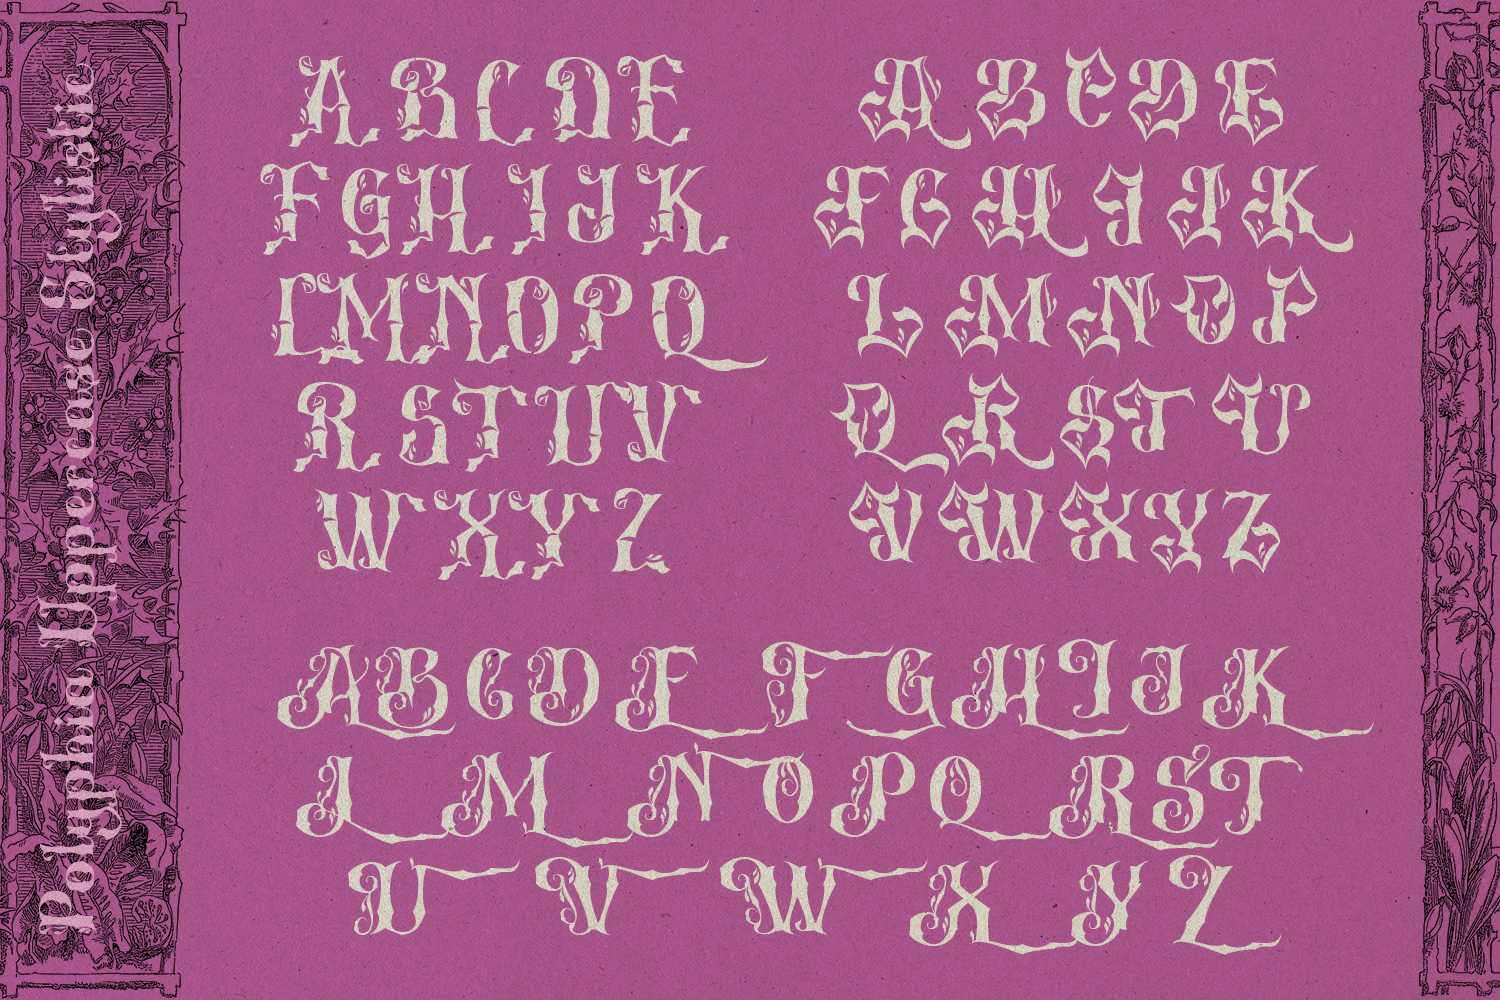 Polyphio Uppercase Stylistic
ABCDE
FGHIJK
LMNOPQ
RSTUV
WXYZ
ABCDE
FGHIJK
LMNOP
QRSTU
VWXYZ
ABCDEFGHIJK
LMNOPQRST
UVWXYZ